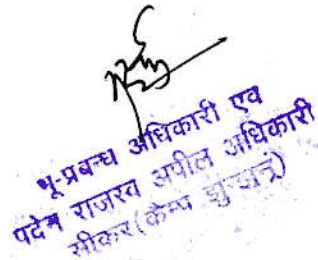 भू-प्रबन्ध अधिकारी एव
पदेन राजस्व अपील अधिकारी
सीकर (केम्प झुन्झुनूं)